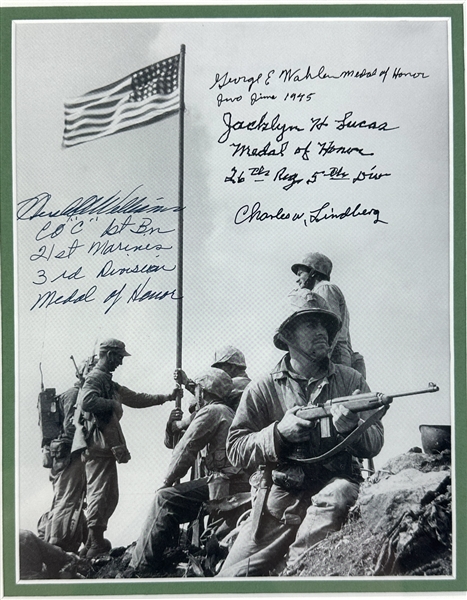 George E Wahlen Medal of Honor
Iwo Jima 1945
Jacklyn H Lucas
Medal of Honor
26th Reg. 5th Div
Charles W. Lindberg
Hershel Williams
CO "C" 1st Bn
21st Marines
3rd Division
Medal of Honor